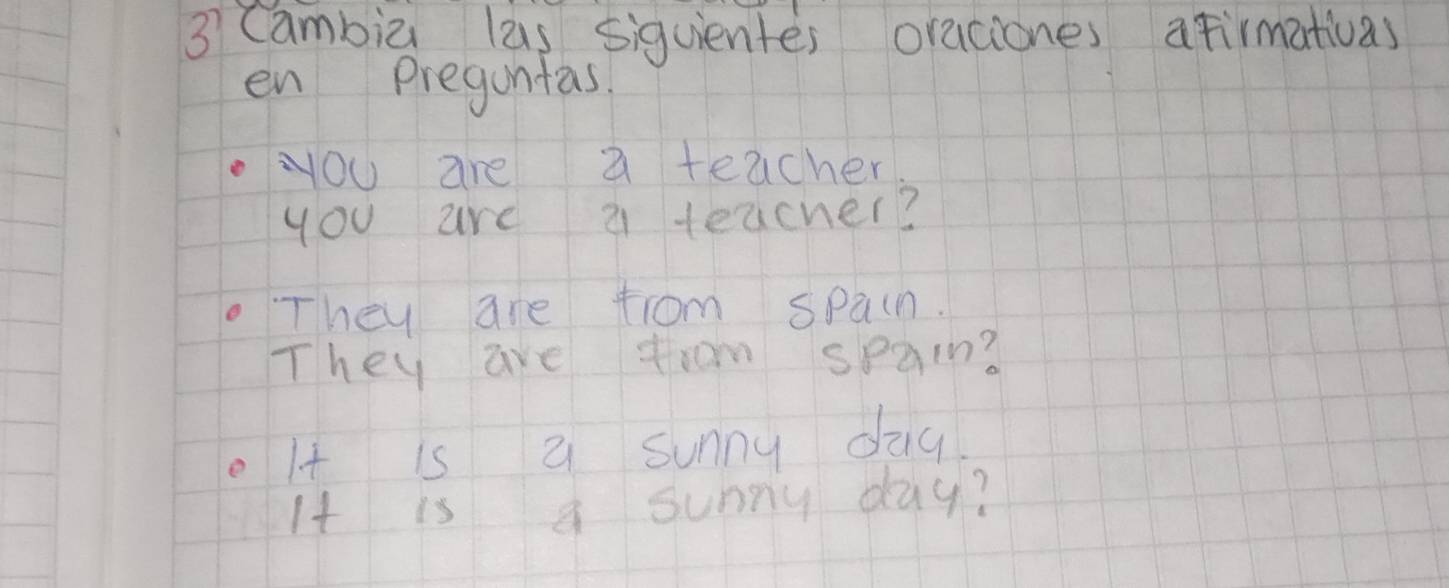 3) Cambia las siguientes oraciones afirmativas
en Preguntas.
• You are a teacher.
you are a teacher?
• They are from spain.
They are from spain?
• It is a sunny day.
It is a sunny day?